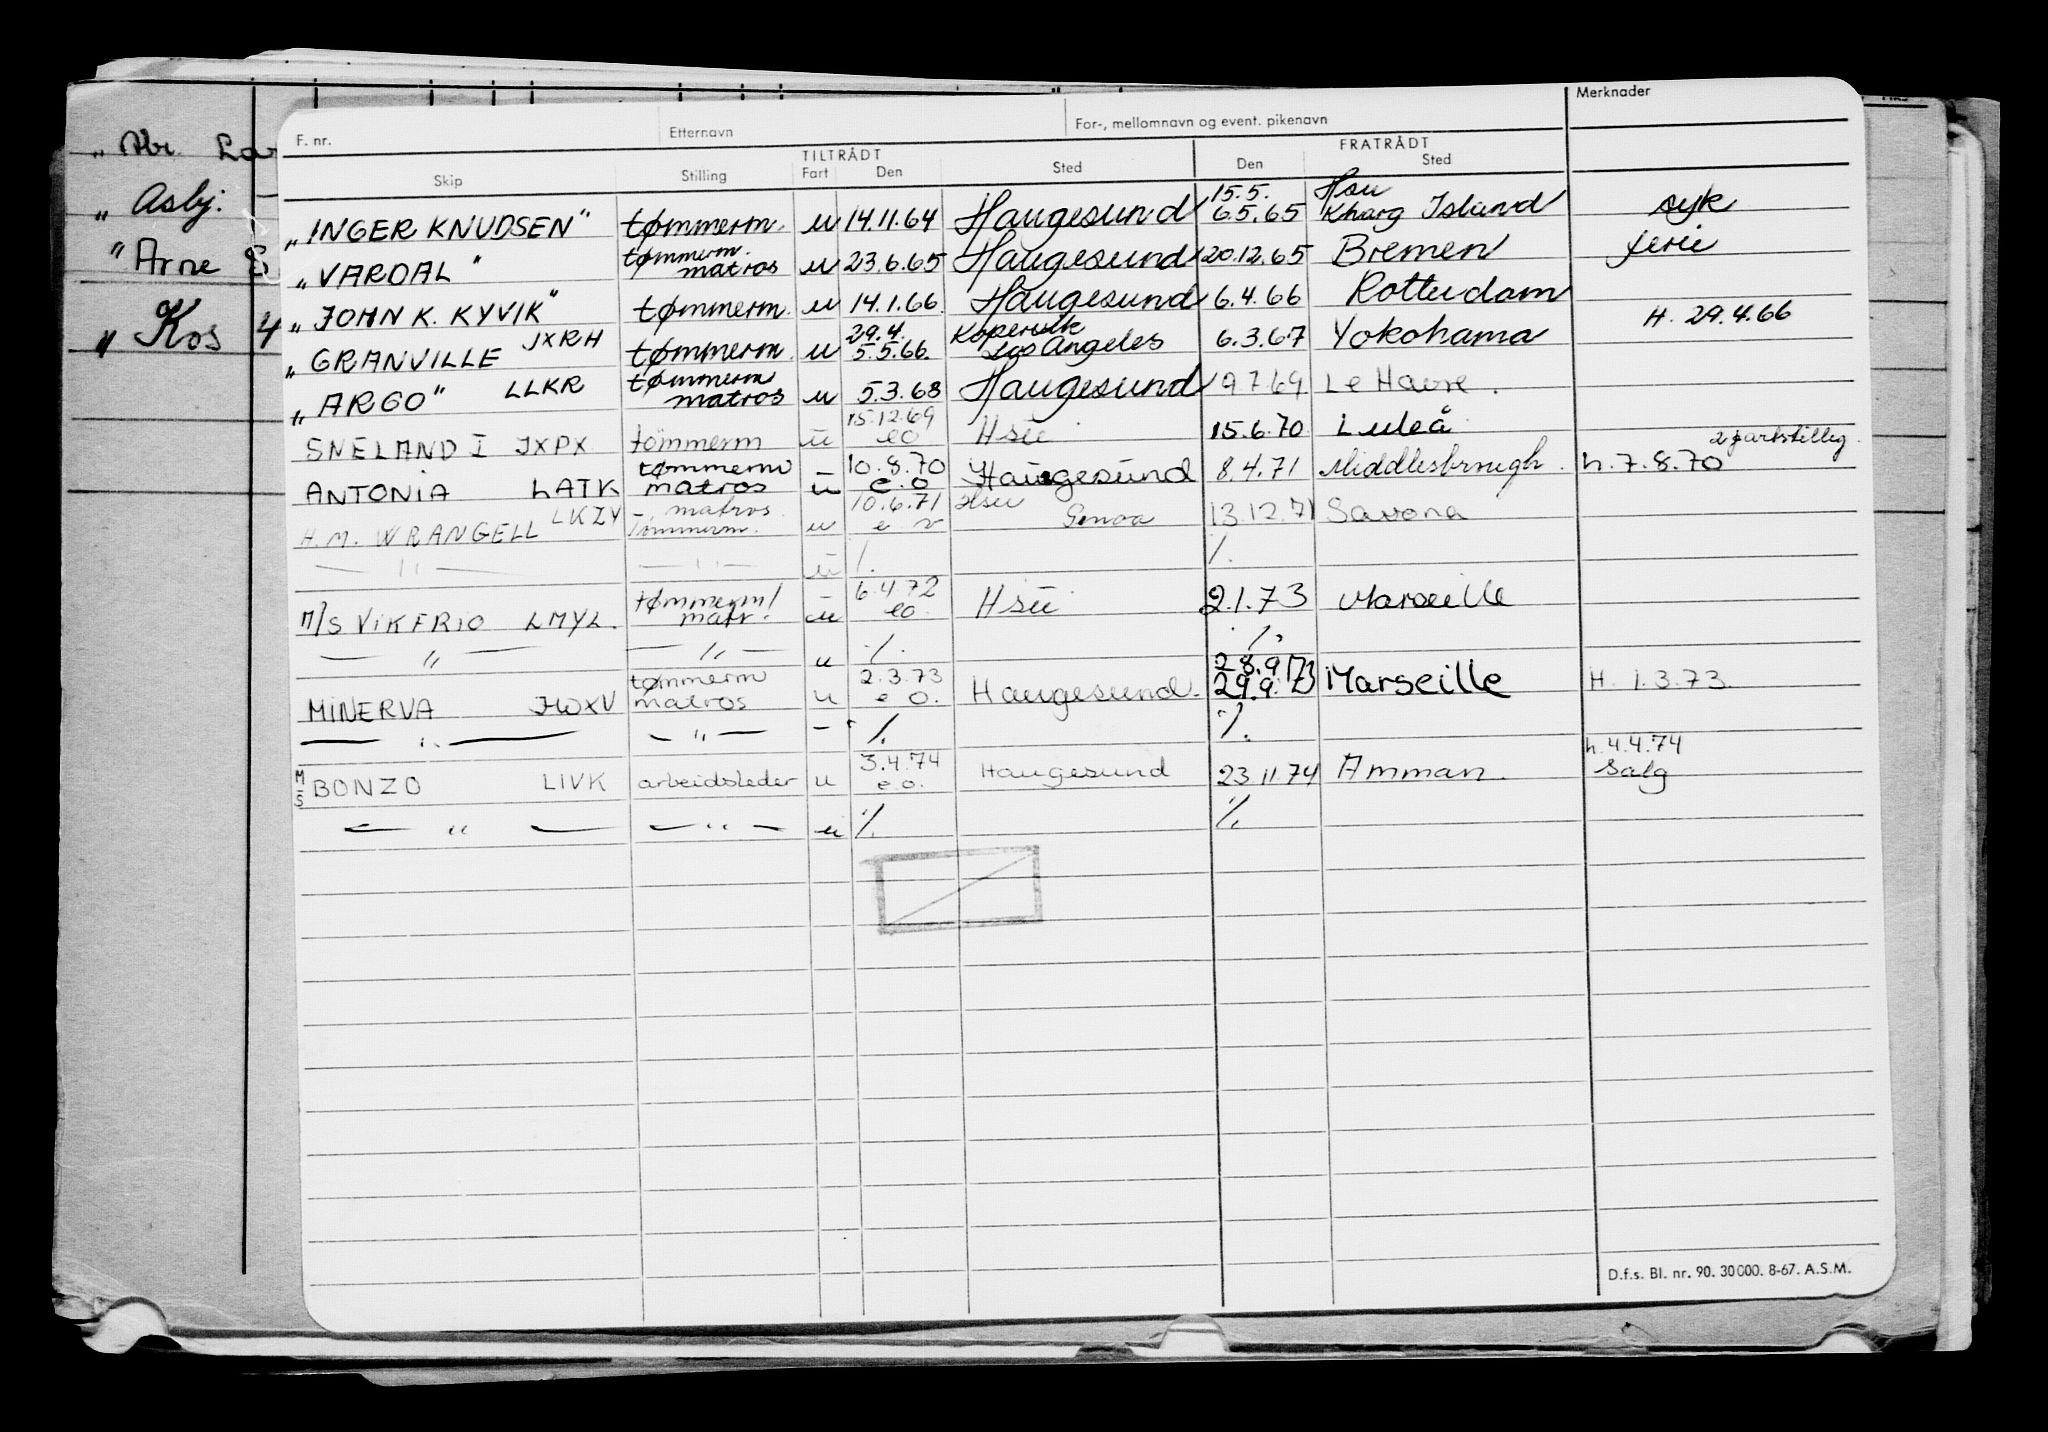 „ Asbj.
" Arne
„ Kos 4
F. nr. Etternavn For-, mellomnavn og event. pikenavn Merknader
TILTRÅDT FRATRÅDT
Skip Stilling Fart Den Sted Den Sted
15.5. Hsu
„INGER KNUDSEN" tømmerm. u 14.11.64 Haugesund 6.5.65 Kharg Island syk
tømmerm.
„VARDAL" matros u 23.6.65 Haugesund 20.12.65 Bremen ferie
„JOHN K. KYVIK" tømmerm. u 14.1.66. Haugesund 6.4.66 Rotterdam
29.4. Kopervik
„GRANVILLE JXRH tømmerm. u 5.5.66. Los Angeles 6.3.67 Yokohama H. 29.4.66
tømmerm
„ARGO" LLKR matros u 5.3.68 Haugesund 19.7.69 Le Havre.
15.12.69
SNELAND I JXPX tömmerm u eo Hsu 15.6.70 Luleå
tømmerm 10.8.70 2 partstillig.
ANTONIA LATK matros u e.o Haugesund 8.4.71 Middlesbrough. h.7.8.70
LKZY matros. 10.6.71 Hsu
H.M. WRANGELL tømmerm. u e v Genoa 13.12.71 Savona
— " — — " — u /. /.
tømmerm/ 6.4.72
M/S VIKFRIO LMYL. matr. u eo. Hsu 2.1.73 Marseille
— " — — " — u /. /.
tømmerm 2.3.73 28.9.73
MINERVA JWXV matros u e o. Haugesund. 29.9.73 Marseille H. 1.3.73.
— " — — " — - " /. /.
3.4.74 h.4.4.74
M/S BONZO LIVK arbeidsleder u e.o. Haugesund 23.11.74 Amman. Salg
— " — — " — u /. /.
D.f.s. Bl. nr. 90. 30000. 8-67. A.S.M.